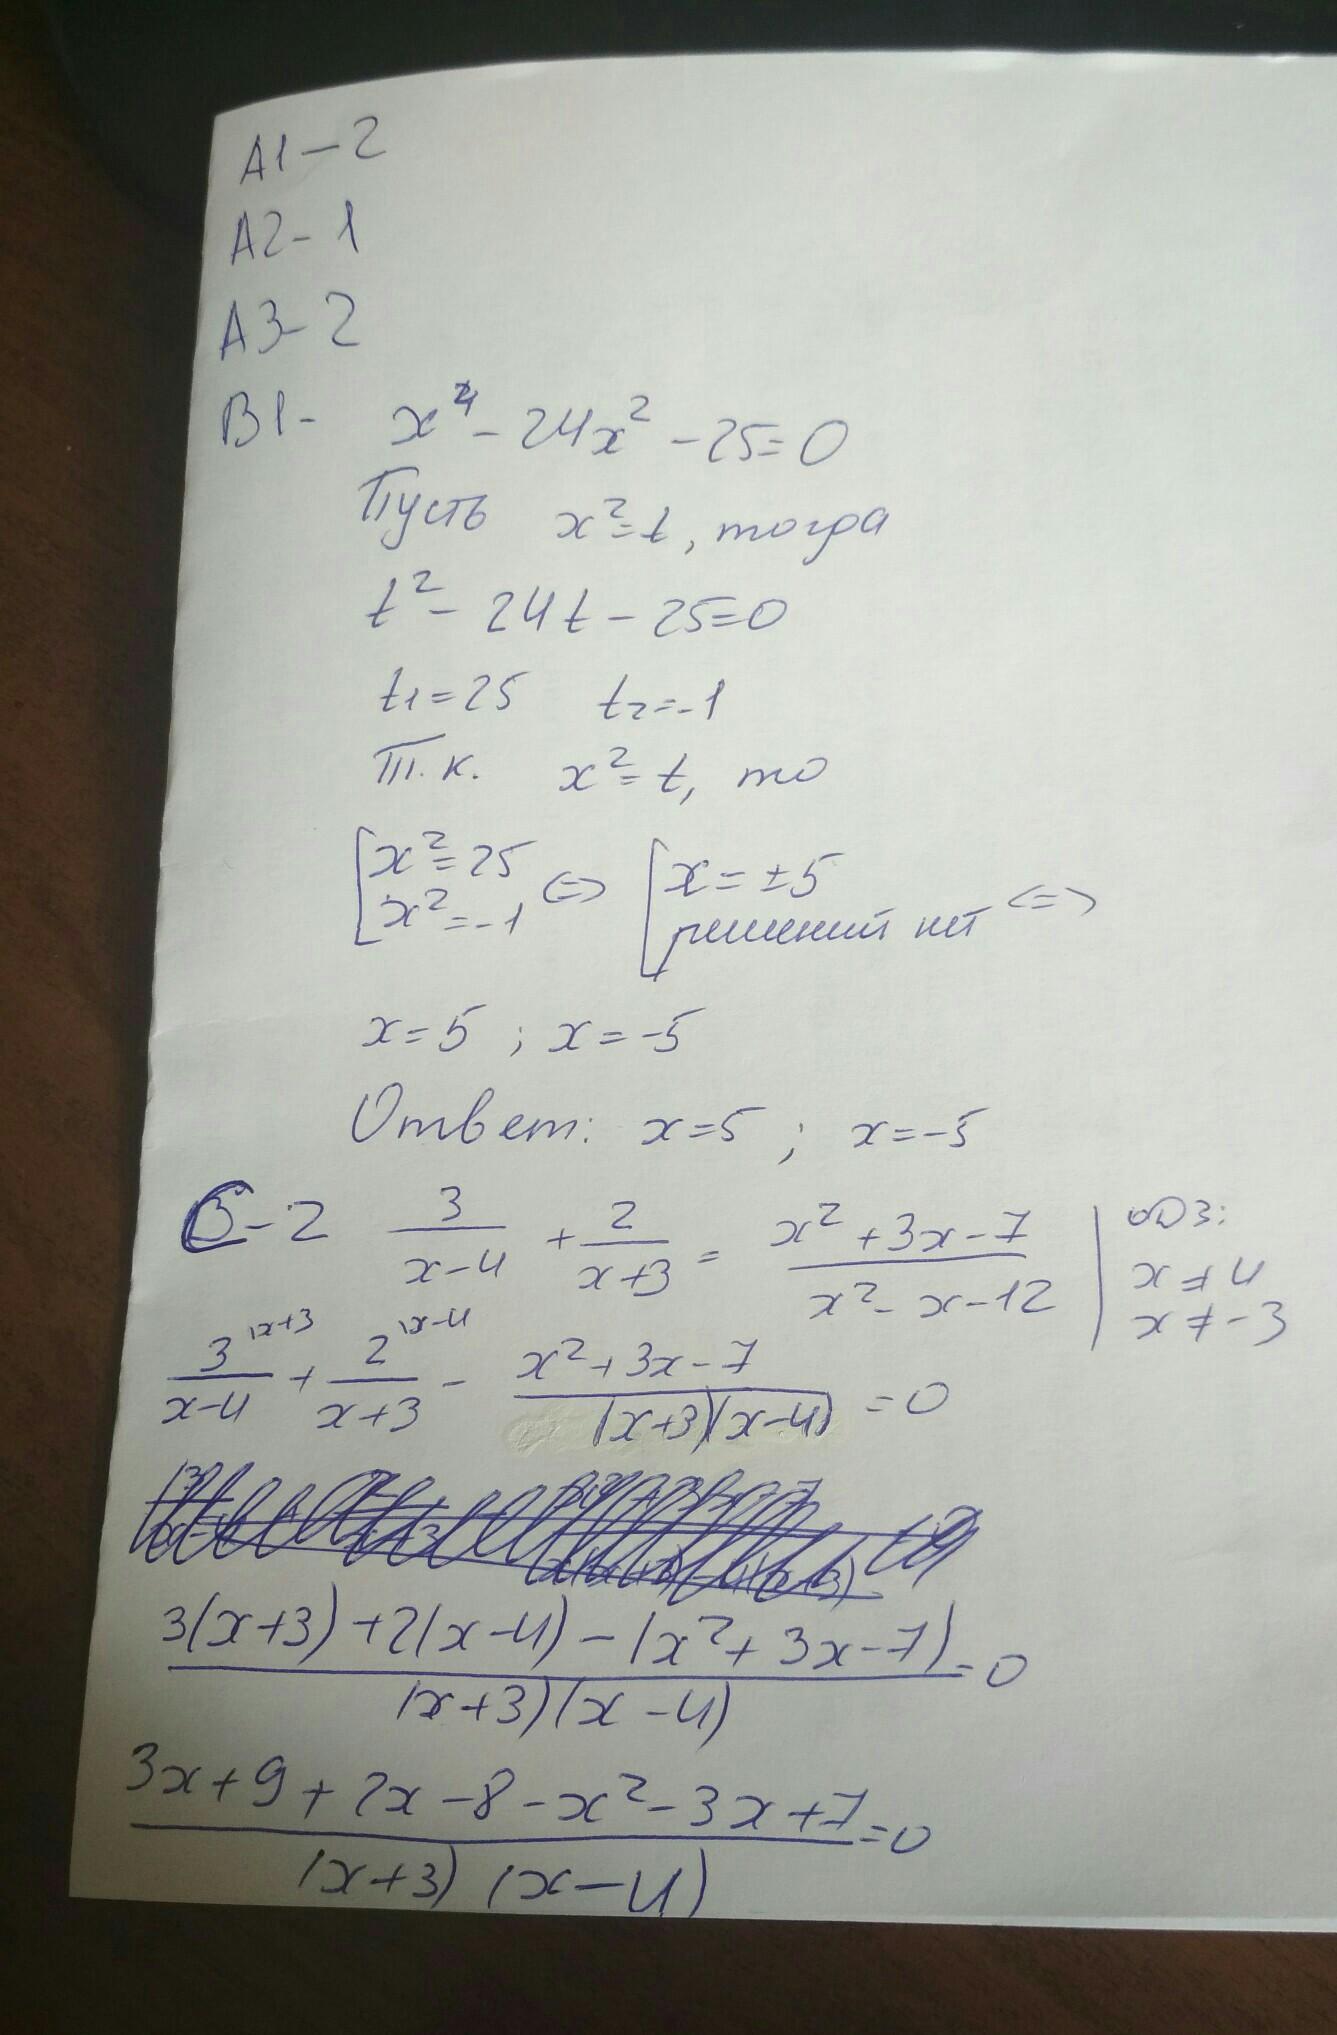 A1-2
A2-1
A3-2
B1- x⁴-24x²-25=0
Пусть x²=t, тогда
t²-24t-25=0
t₁=25 t₂=-1
Т.к. x²=t, то
[x²=25 [x=±5
x²=-1 <=> решений нет <=>
x=5; x=-5
Ответ: x=5; x=-5
-2 3/(x-4) + 2/(x+3) = (x²+3x-7)/(x²-x-12) | ОДЗ:
x≠4
x≠-3
3^(x+3)/(x-4) + 2^(x-4)/(x+3) - (x²+3x-7)/((x+3)(x-4)) =0
(3(x+3)+2(x-4)-(x²+3x-7))/((x+3)(x-4)) =0
(3x+9+2x-8-x²-3x+7)/((x+3)(x-4)) =0